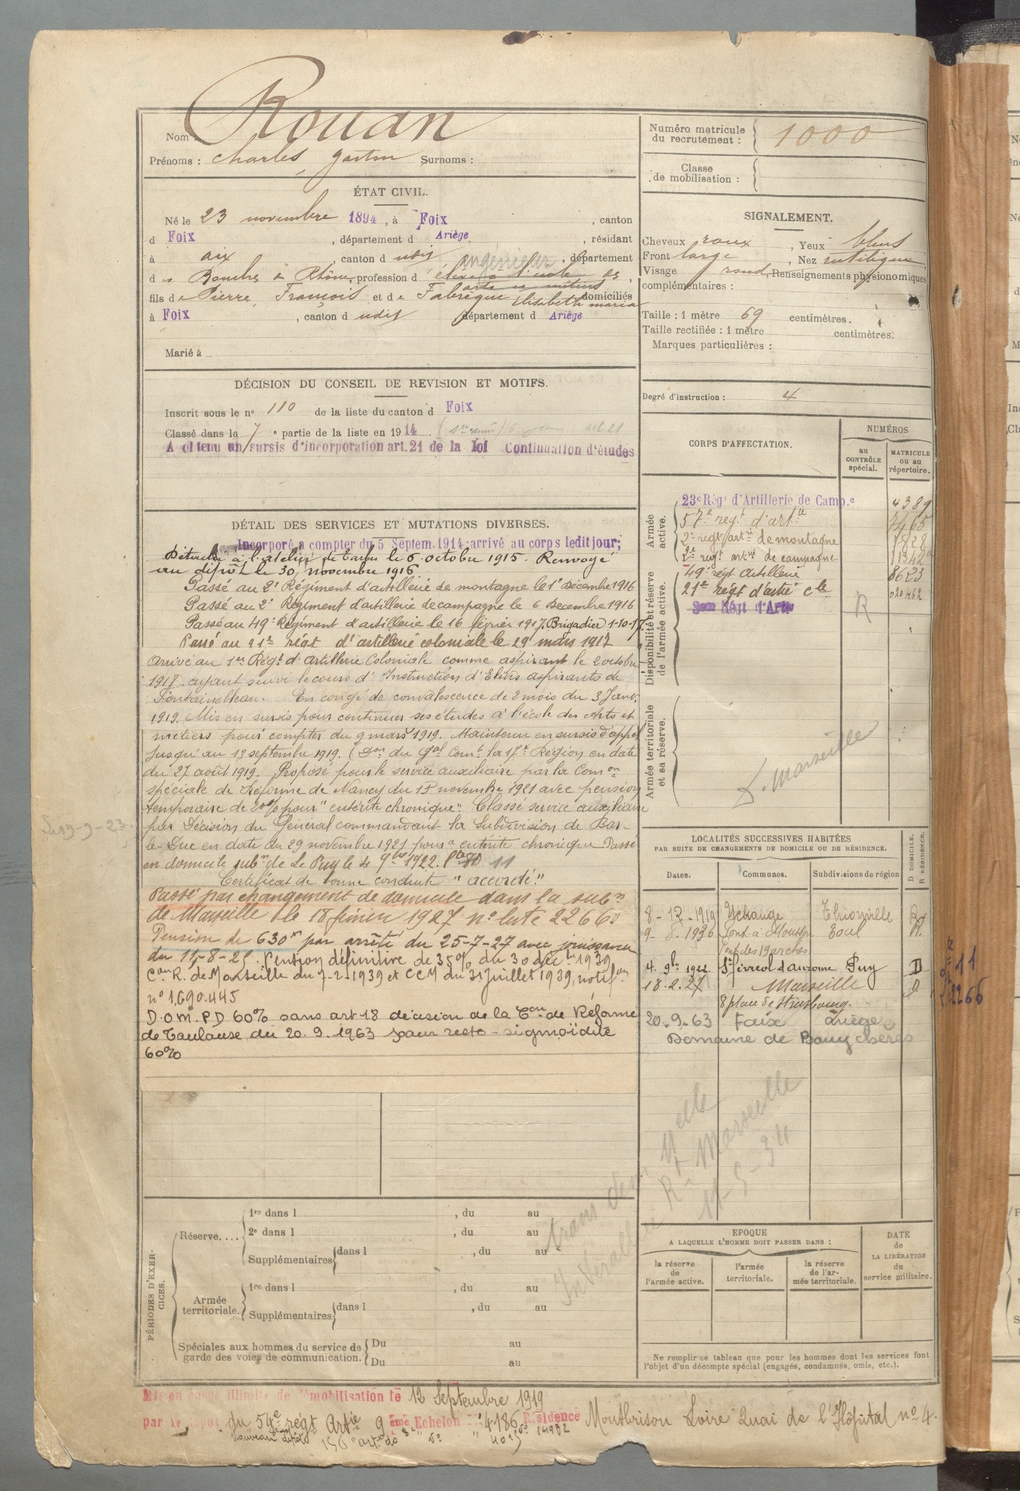 Nom : Rouan
Prénoms : Charles Gaston Surnoms :
Numéro matricule du recrutement : 1000
Classe de mobilisation :
ÉTAT CIVIL.
Né le 23 novembre 1894, à Foix, canton
d Foix, département d Ariège, résidant
à aix, canton d udit, ingénieur, département
d es Bouches du Rhône, profession d élève à l'école des
arts et métiers
fils de Pierre, François et de Fabrègue Elisabeth maria domiciliés
à Foix, canton d udit département d Ariège
Marié à
SIGNALEMENT.
Cheveux roux, Yeux bleus
Front large, Nez rectiligne
Visage rond, Renseignements physionomiques
complémentaires :
Taille : 1 mètre 69 centimètres.
Taille rectifiée : 1 mètre centimètres.
Marques particulières :
Degré d'instruction : 4
DÉCISION DU CONSEIL DE REVISION ET MOTIFS.
Inscrit sous le n° 110 de la liste du canton d Foix
Classé dans la 7e partie de la liste en 1914.
A obtenu un sursis d'incorporation art. 21 de la loi Continuation d'études
DÉTAIL DES SERVICES ET MUTATIONS DIVERSES.
Incorporé a compter du 5 Septem. 1914; arrivé au corps ledit jour;
Détaché à l'atelier de Tarbes le 6 octobre 1915. Renvoyé
au dépôt le 30 novembre 1916
Passé au 2e Régiment d'artillerie de montagne le 1er décembre 1916
Passé au 2e Régiment d'artillerie de campagne le 6 Decembre 1916
Passé au 49e Régiment d'artillerie le 16 février 1917 Brigadier 1-10-17
Passé au 21e régt d'artillerie coloniale le 29 mars 1917
Arrivé au 1er Régt d'artillerie Coloniale comme aspirant le 2 octobre
1918 ayant suivi le cours d'Instruction d'Elèves aspirants de
Fontainebleau. En congé de convalescence de 2 mois du 3 Janv.
1919. Mis en sursis pour continuer ses études à l'école des Arts et
métiers pour compter du 9 mars 1919. Maintenu en sursis d'appel
jusqu'au 13 septembre 1919. du Gal Comt la 17e Région en date
du 27 août 1919. Proposé pour le service auxiliaire par la Comon
spéciale de Réforme de Nancy du 15 novembre 1921 avec pension
temporaire de 20% pour "entérite chronique". Classé service auxiliaire
par Décision du Général commandant la Subdivision de Bar-
le-Duc en date du 29 novembre 1921 pour entérite chronique Passé
en domicile subon de Le Puy le 4 9bre 1922. 11
Certificat de bonne conduite "accordé."
Passé par changement de domicile dans la subon
de Marseille le 18 février 1927 n° liste 2266
Pension de 630 par arrêté du 25-7-27 avec jouissance
du 15-8-25. Pention définitive de 35% du 30 déc. 1939
Con R. de Marseille du 7-2-1939 et CCM du 31 Juillet 1939, notifon
n° 1.690.445
D.O.M. P.D 60% sans art 18 décision de la Con de Réforme
de Toulouse du 20.9.1963 pour recto-sigmoïdite
60%
CORPS D'AFFECTATION.
NUMÉROS
AU CONTRÔLE spécial.
MATRICULE ou au répertoire.
Armée active.
23e Régt d'Artillerie de Campe 4389
57e regt d'artie 7465
2e regt art de montagne
2e regt art de campagne 11342
Disponibilité et réserve de l'armée active.
49e régt Artillerie 8623
21e régt d'artie cle 020462
R
Armée territoriale et sa réserve.
D. Marseille
LOCALITÉS SUCCESSIVES HABITÉES
PAR SUITE DE CHANGEMENTS DE DOMICILE OU DE RÉSIDENCE.
Dates. Communes. Subdivisions de région D DOMICILE. R RÉSIDENCE.
8-12-1919 Uckange Thionville R
9-8-1920 Pont à Mousson Toul R
4 9bre 1922 St Ferréol d'Auroure Puy D 11
18.2.27 Marseille D 2266
8 place de Strasbourg
20.9.63 Foix Ariège
Domaine de Bouychères
Marseille
11-5-34
PÉRIODES D'EXERCICES.
Réserve.... 1re dans l , du au
2e dans l , du au
Supplémentaires dans l , du au
Armée territoriale. 1re dans l , du au
Supplémentaires dans l , du au
Spéciales aux hommes du service de garde des voies de communication. Du au
Du au
EPOQUE
A LAQUELLE L'HOMME DOIT PASSER DANS :
la réserve de l'armée active. l'armée territoriale. la réserve de l'armée territoriale.
DATE de LA LIBÉRATION du service militaire.
Ne remplir ce tableau que pour les hommes dont les services font
l'objet d'un décompte spécial (engagés, condamnés, omis, etc.).
Mis en congé illimité de démobilisation le 12 Septembre 1919
par le dépôt du 54e régt Artie 9 ème Echelon 4186 Résidence Montbrison Loire Quai de l'Hôpital n° 4.